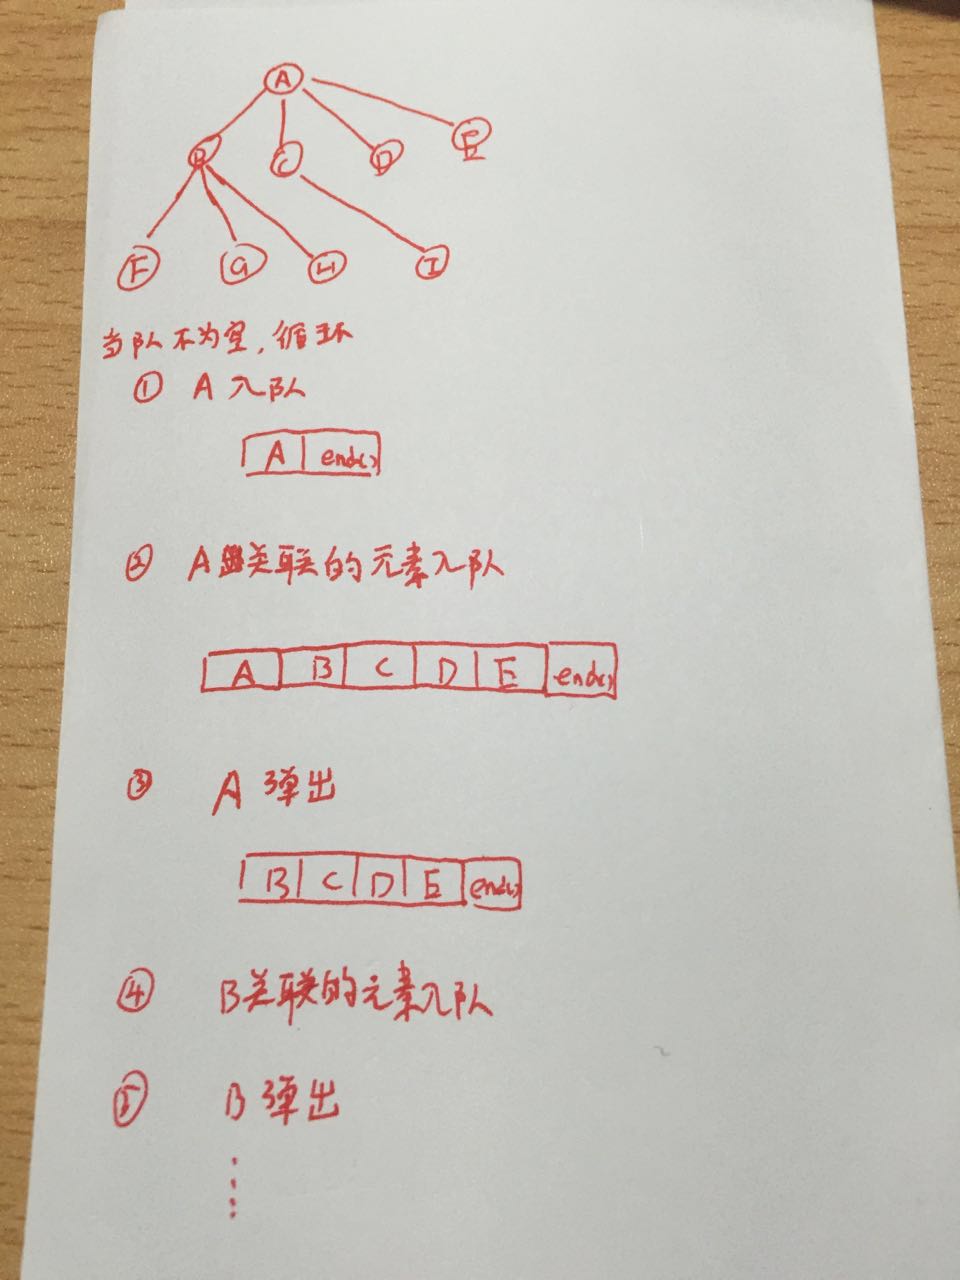 A
B C D E
F G H I
当队不为空,循环
① A 入队
A end()
② A关联的元素入队
A B C D E end()
③ A 弹出
B C D E end()
④ B关联的元素入队
⑤ B 弹出